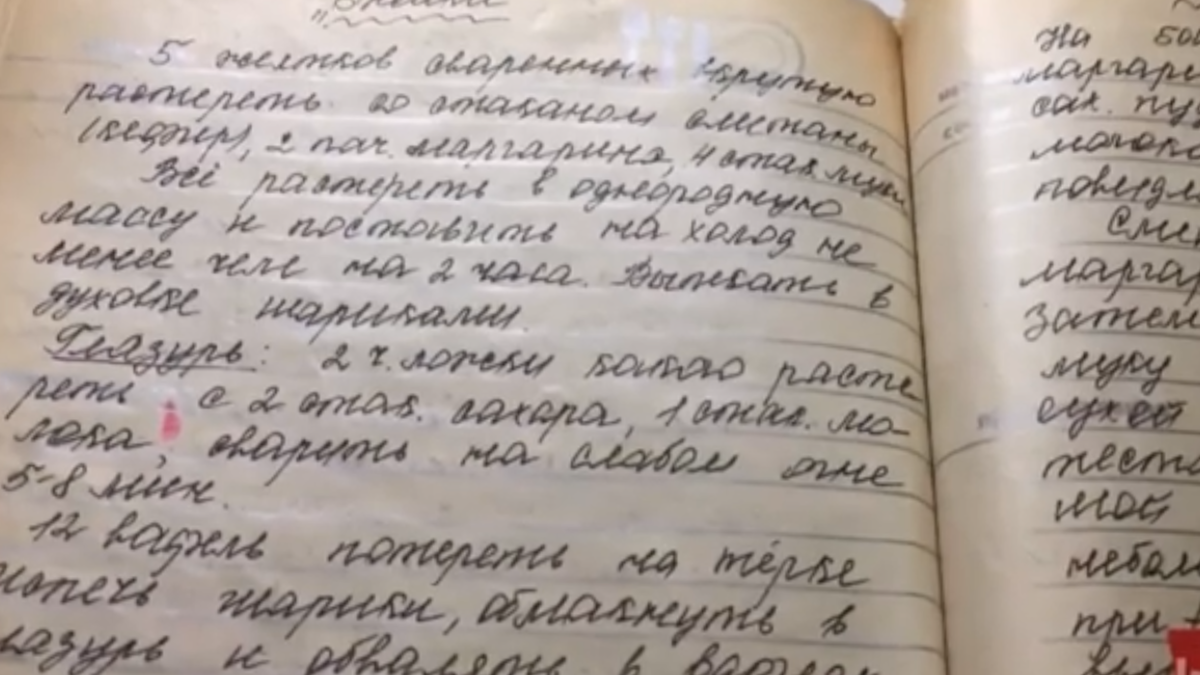 5 желтков сваренных вкрутую
растереть со стаканом сметаны
(кефир), 2 пач. маргарина, 4 стак. муки.
Всё растереть в однородную
массу и поставить на холод не
менее чем на 2 часа. Выпекать в
духовке шариками.
Глазурь: 2 ч. ложки какао расте-
реть с 2 стак. сахара, 1 стак. мо-
лока, сварить на слабом огне
5-8 мин.
12 вафель потереть на тёрке
испечь шарики, обмакнуть в
глазурь и обвалять в
На
марга
сах. пу
молоко
повидл
Сме
марга
Затем
муку
сухой
тесто
мой
небол
при